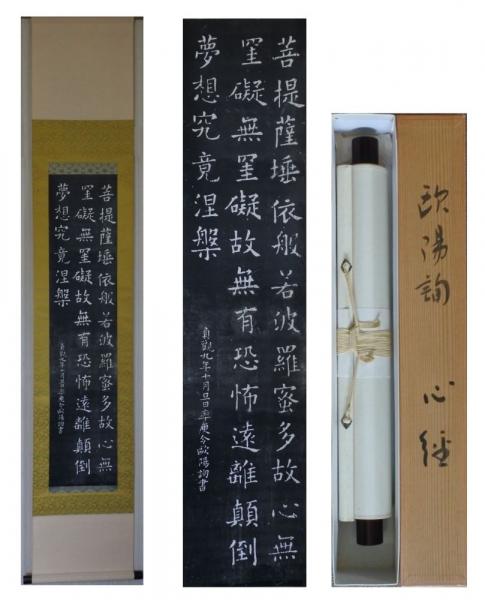 菩提薩埵依般若波羅蜜多故心無
罣礙無罣礙故無有恐怖遠離顛倒
夢想究竟涅槃
貞觀九年十月旦日率更令歐陽詢書
菩提薩埵依般若波羅蜜多故心無
罣礙無罣礙故無有恐怖遠離顛倒
夢想究竟涅槃
貞觀九年十月旦日率更令歐陽詢書
欧陽詢 心経